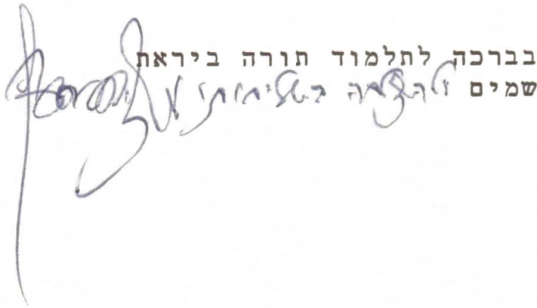 בברכה לתלמוד תורה ביראת
שמים ולהצלחה בשליחותו